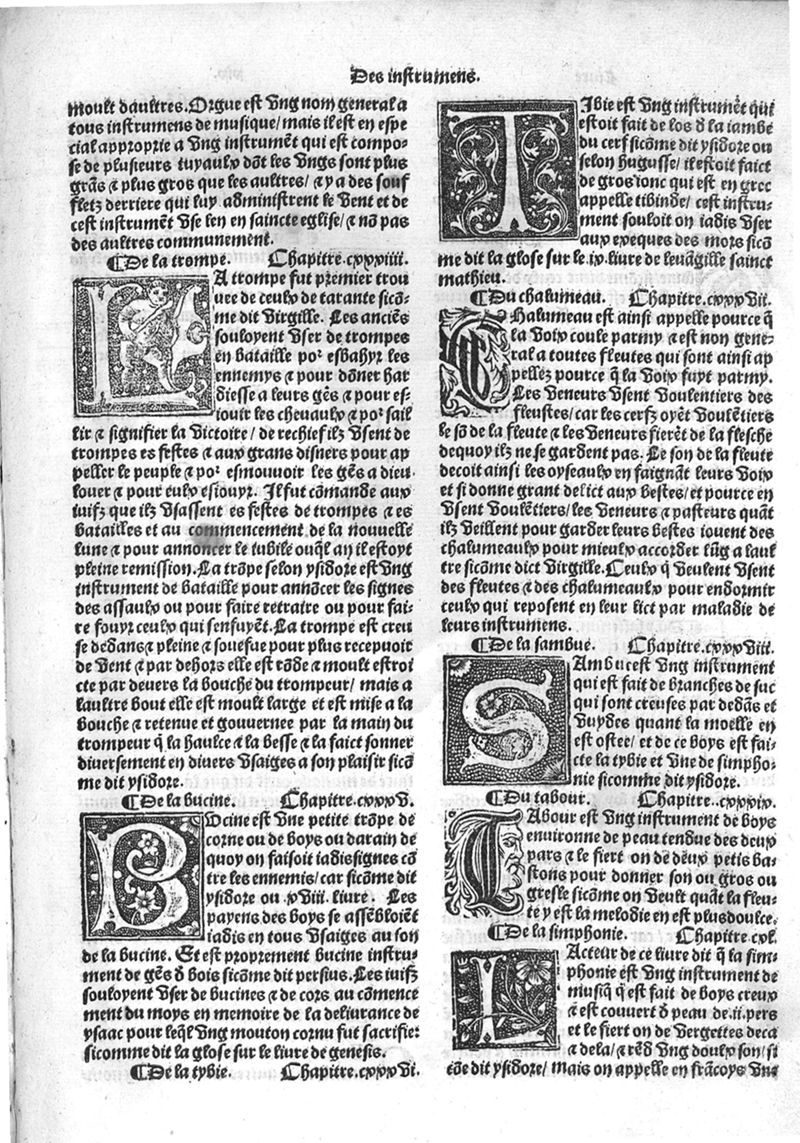 Des instrumens.
moult daultres. Orgue est vng nom general a
tous instrumens de musique/ mais il est en espe
cial approprie a vng instrumēt qui est compo-
se de plusieurs tuyaulx dōt les vngs sont plus
grās ⁊ plus gros que les aultres/ ⁊ y a des souf
fletz derriere qui luy administrent le vent et de
cest instrumēt vse len en saincte eglise/ ⁊ nō pas
des aultres communement.
¶De la trompe. Chapitre.cxxxiiii.
LA trompe fut premier trou
uee de ceulx de tarante sicō-
me dit virgille. Les anciēs
souloyent vser de trompes
en bataille poᵣ esbahyr les
ennemys ⁊ pour dōner har
diesse a leurs gēs ⁊ pour es-
iouir les cheuaulx ⁊ poᵣ sail
lir ⁊ signifier la victoire/ de rechief ilz vsent de
trompes es festes ⁊ aux grans disners pour ap
peller le peuple ⁊ poᵣ esmouuoir les gēs a dieu
louer ⁊ pour eulx esiouyr. Il fut cōmande aux
iuifz que ilz vsassent es festes de trompes ⁊ es
batailles et au commencement de la nouuelle
lune ⁊ pour annoncer le iubile ouq̄l an il estoyt
pleine remission. La trōpe selon ysidore est vng
instrument de bataille pour annōcer les signes
des assaulx ou pour faire retraire ou pour fai-
re fouyr ceulx qui senfuyēt. La trompe est creu
se dedans ⁊ pleine ⁊ souefue pour plus recepuoir
de vent ⁊ par dehors elle est rōde ⁊ moult estroi
cte par deuers la bouche du trompeur/ mais a
laultre bout elle est moult large et est mise a la
bouche ⁊ retenue et gouuernee par la main du
trompeur q̄ la haulce ⁊ la besse ⁊ la faict sonner
diuersement en diuers vsaiges a son plaisir sicō
me dit ysidore.
¶De la bucine. Chapitre.cxxxv.
BUcine est vne petite trōpe de
corne ou de boys ou darain de
quoy on faisoit iadis signes cō
tre les ennemis/ car sicōme dit
ysidore ou .xviii. liure. Les
payens des boys se assēbloiēt
iadis en tous vsaiges au son
de la bucine. Et est proprement bucine instru-
ment de gēs d̄ bois sicōme dit persius. Les iuifz
souloyent vser de bucines ⁊ de cors au cōmence
ment du moys en memoire de la deliurance de
ysaac pour leq̄l vng mouton cornu fut sacrifie:
sicomme dit la glose sur le liure de genesis.
¶De la tybie. Chapitre.cxxxvi.
TIbie est vng instrumēt qui
estoit fait de los d̄ la iambe
du cerf sicōme dit ysidore ou
selon hugusse/ il estoit faict
de gros ionc qui est en grec
appelle tibinde/ cest instru-
ment souloit on iadis vser
aux exeques des mors sicō
me dit la glose sur le .ix. liure de leuāgille sainct
mathieu.
¶Du chalumeau. Chapitre.cxxxvii.
CHalumeau est ainsi appelle pource q̄
la voix coule parmy ⁊ est non gene-
ral a toutes fleutes qui sont ainsi ap
pellez pource q̄ la voix fuyt parmy.
Les veneurs vsent voulentiers des
fleustes/ car les cerfz oyēt voulētiers
le sō de la fleute ⁊ les veneurs fierēt de la flesche
dequoy ilz ne se gardent pas. Le son de la fleute
decoit ainsi les oyseaulx en faignāt leurs voix
et si donne grant delict aux bestes/ et pource en
vsent voulētiers/ les veneurs ⁊ pasteurs quāt
ilz veillent pour garder leurs bestes iouent des
chalumeaulx pour mieulx accorder lūg a laul
tre sicōme dict virgille. Ceulx q̄ veulent vsent
des fleutes ⁊ des chalumeaulx pour endormir
ceulx qui reposent en leur lict par maladie de
leurs instrumens.
¶De la sambue. Chapitre.cxxxviii.
SAmbucest vng instrument
qui est fait de branches de suc
qui sont creuses par dedās et
vuydes quant la moelle en
est ostee/ et de ce boys est fai-
cte la tybie et vne de simpho-
nie sicomme dit ysidore.
¶Du tabour. Chapitre.cxxxix.
TAbour est vng instrument de boys
enuironne de peau tendue des deux
pars ⁊ le fiert on de deux petis ba-
stons pour donner son ou gros ou
gresle sicōme on veult quāt la fleu-
te y est la melodie en est plus doulce.
¶De la simphonie. Chapitre cxl.
LActeur de ce liure dit q̄ la sim-
phonie est vng instrument de
musiq̄ q̄ est fait de boys creux
⁊ est couuert d̄ peau de .ii. pars
et le fiert on de vergettes deca
⁊ de la/ ⁊ rēd vng doulx son/ si
cōe dit ysidore/ mais on appelle en frācoys vne